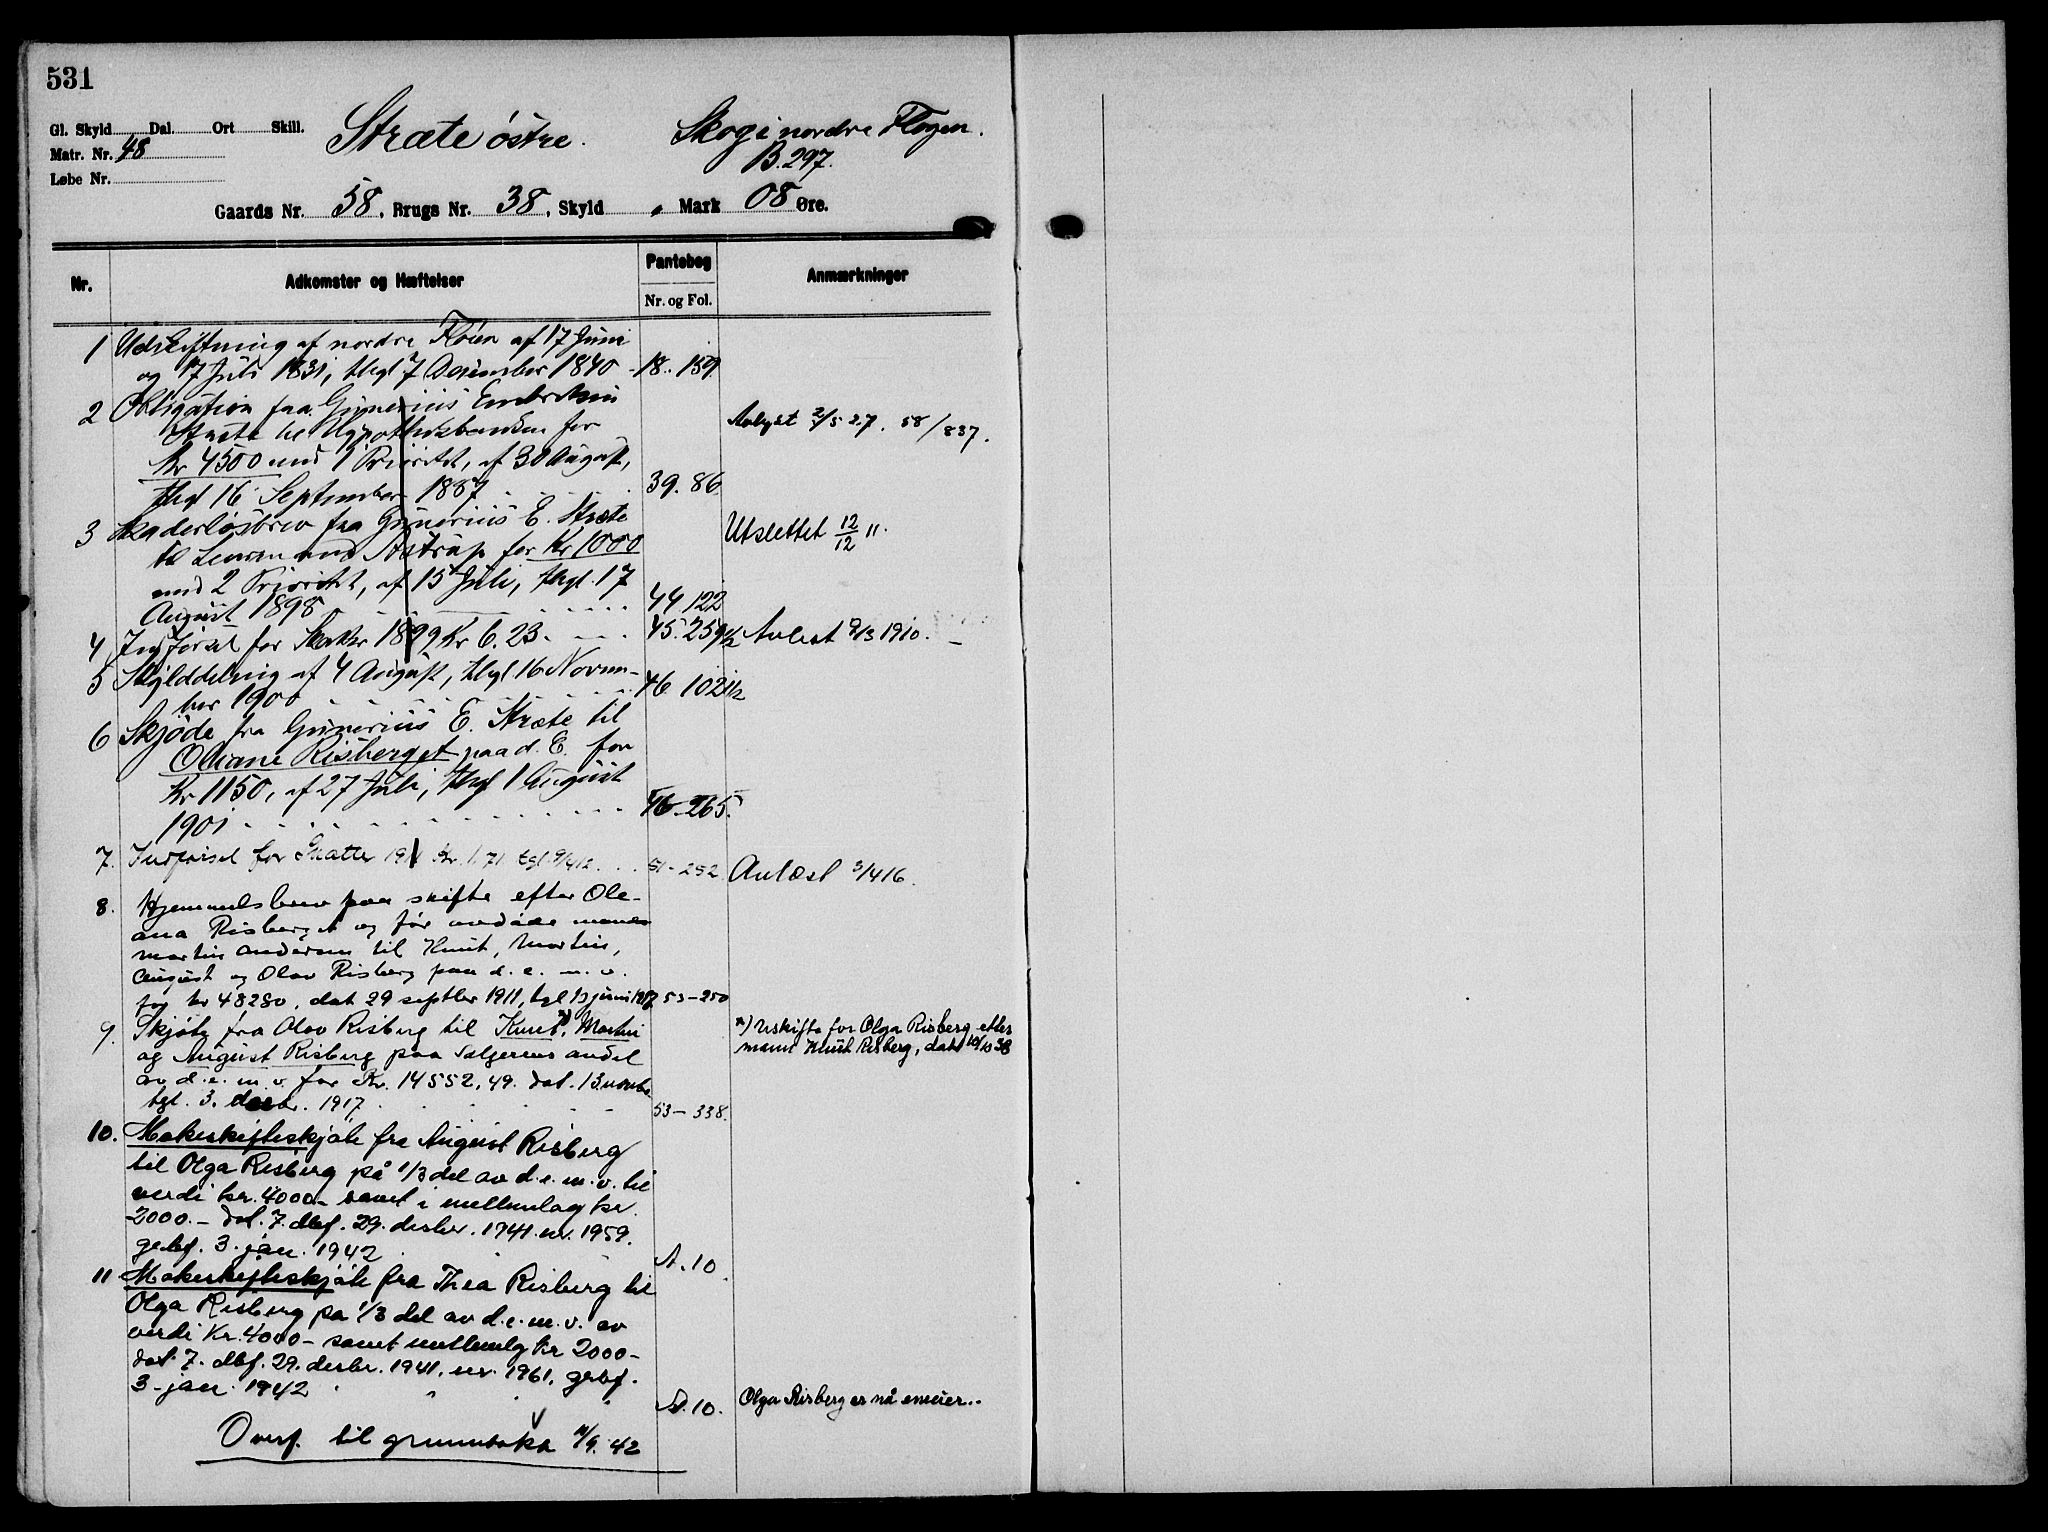 531
Gl. Skyld Dal. Ort Skill.
Stræte østre. Skog i nordre Flogen.
Matr. Nr. 48
B. 297.
Løbe Nr.
Gaards Nr. 58, Brugs Nr. 38, Skyld , Mark 08 Øre.
Nr. Adkomster og Hæftelser Pantebog Anmærkninger
Nr. og Fol.
1 Udskiftning af nordre Floien af 17 Juni
og 17 Juli 1831, thgl 7 December 1840 - 18.. 159.
2 Obligation fra Gunerius Embretsen
Stræte til Hypothekbanken for Avlyst 2/5 27. 58/837.
Kr 4500 med 1 Prioritet, af 30 August,
thgl 16 September 1887 39. 86.
3 Skadesløsbrev fra Gunerius E. Stræte Utslettet 12/12 11.
til Lensmand Aastrup for Kr 1000
med 2 Prioritet, af 15 Juli, thgl. 17
August 1898 44 122
4 Indførsel for Skatter 1899 Kr 6.23. 45. 259 1/2 Avlest 9/3 1910. -
5 Skylddeling af 4 August, thgl 16 Novem-
ber 1900 46 102 1/2
6 Skjøde fra Gunerius E. Stræte til
Oleane Risberget paa d. E. for
Kr 1150, af 27 Juli, thgl 1 August
1901 46-265.
7. Indførsel for Skatter 1911 Kr. 1.71 tgl. 9/4 12. 51-252. Avlæst 3/4 16.
8. Hjemmelsbrev paa skifte efter Ole-
ana Risberget og før avdøde mand
Martin Andersen til Knut, Martin,
August og Olav Risberg paa d. e. m. v.
for kr 48280, dat 29 septber 1911, tgl 13 juni 1917 53-250
9. Skjøte fra Olav Risberg til Knut *), Martin *) Uskifte for Olga Risberg etter
og August Risberg paa Sælgerens andel mann Knut Risberg, dat 10/10 38
av d. e. m. v. for Kr. 14552,49. dat. 13 novbr.
tgl. 3. desbr. 1917. 53-338.
10. Makeskifteskjøte fra August Risberg
til Olga Risberg på 1/3 del av d. e. m. v. til
verdi kr. 4000- samt i mellemlag kr.
2000.- dat. 7. dbf. 29. desbr. 1941. nr. 1959.
gebf. 3. jan. 1942 A. 10.
11 Makeskifteskjøte fra Thea Risberg til
Olga Risberg pa 1/3 del av d. e. m. v. av
verdi Kr. 4000- samt mellemlg kr 2000-
dat. 7. dbf. 29. desbr. 1941. nr. 1961, gebf.
3. jan. 1942 A. 10. Olga Risberg er nå eneeier..
Overf. til grunnboka 11/9. 42